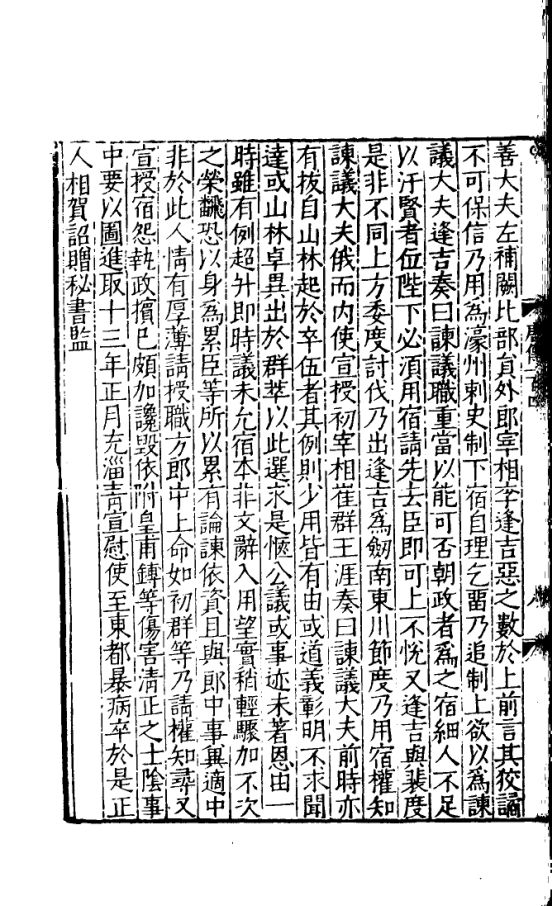 善大夫左補闕比部員外郎宰相李逢吉惡之數於上前言其狡譎
不可保信乃用爲濠州刺史制下宿自理乞畱乃追制上欲以爲諫
議大夫逢吉奏曰諫議職重當以能可否朝政者爲之宿細人不足
以汙賢者位陛下必須用宿請先去臣即可上不悅又逢吉與裴度
是非不同上方委度討伐乃出逢吉爲劒南東川節度乃用宿權知
諫議大夫俄而内使宣授初宰相崔群王涯奏曰諫議大夫前時亦
有拔自山林起於卒伍者其例則少用皆有由或道義彰明不求聞
達或山林卓異出於群萃以此選求是愜公議或事迹未著恩由一
時雖有例超升即時議未允宿本非文辭入用望實稍輕驟加不次
之榮飜恐以身爲累臣等所以累有論諫依資且與郎中事異適中
非於此人情有厚薄請授職方郎中上命如初群等乃請權知尋又
宣授宿怨執政擯已頗加讒毀依附皇甫鏄等傷害清正之士陰事
中要以圖進取十三年正月充淄青宣慰使至東都暴病卒於是正
人相賀詔贈秘書監